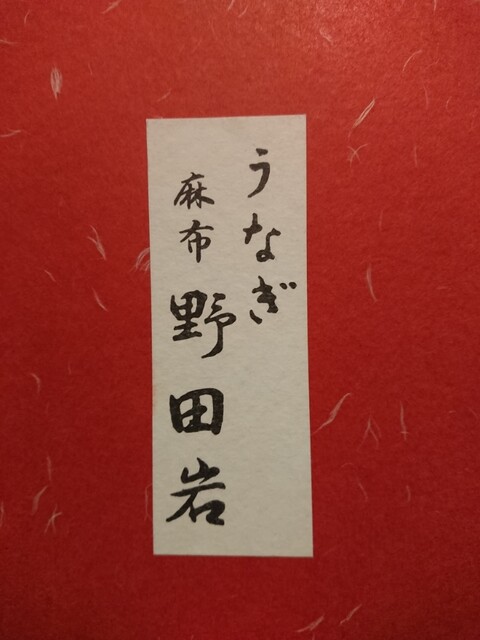 うなぎ
麻布 野田岩